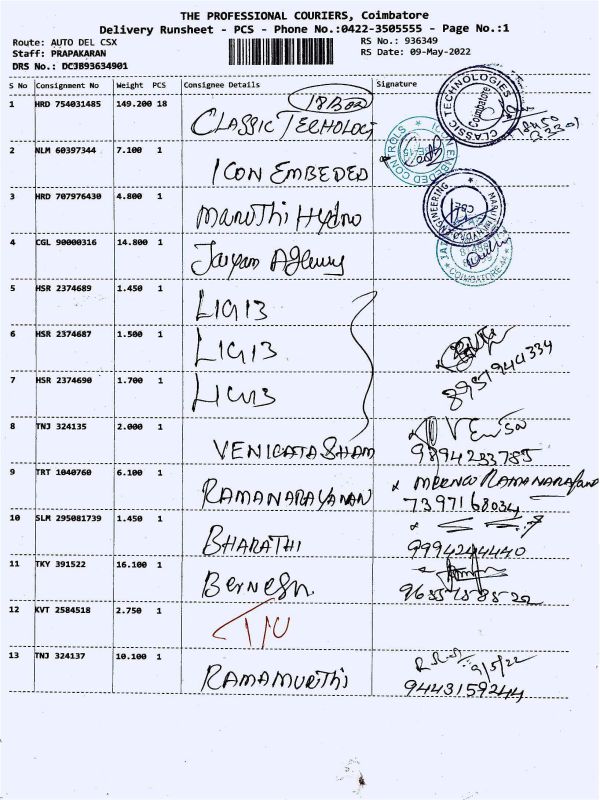 THE PROFESSIONAL COURIERS, Coimbatore
Delivery Runsheet - PCS - Phone No.:0422-3505555 - Page No.:1
Route: AUTO DEL CSX RS No.: 936349
Staff: PRAPAKARAN RS Date: 09-May-2022
DRS No.: DCJB93634901
S No Consignment No Weight PCS Consignee Details Signature
1 HRD 754031485 149.200 18 18 Box
CLASSIC TECHOLOGI CLASSIC TECHNOLOGIES Coimbatore
2 NLM 60397344 7.100 1 ICON EMBEDED ICON EMBEDED CONTROLS
3 HRD 707976430 4.800 1 Maruthi Hydro MARUTHI HYDRO ENGINEERING CBE
4 CGL 90000316 14.800 1 COIMBATORE-44
5 HSR 2374689 1.450 1 LIG 13
6 HSR 2374687 1.500 1 LIG 13
7 HSR 2374690 1.700 1 LIG 13 8951944334
8 TNJ 324135 2.000 1 VENKATA SHAM
9 TRT 1040760 6.100 1 RAMANARAYANAN 7397168034
10 SLM 295081739 1.450 1 BHARATHI 9994244440
11 TKY 391522 16.100 1
12 KVT 2584518 2.750 1
13 TNJ 324137 10.100 1 RAMAMURTHI 9/5/22
9443159244